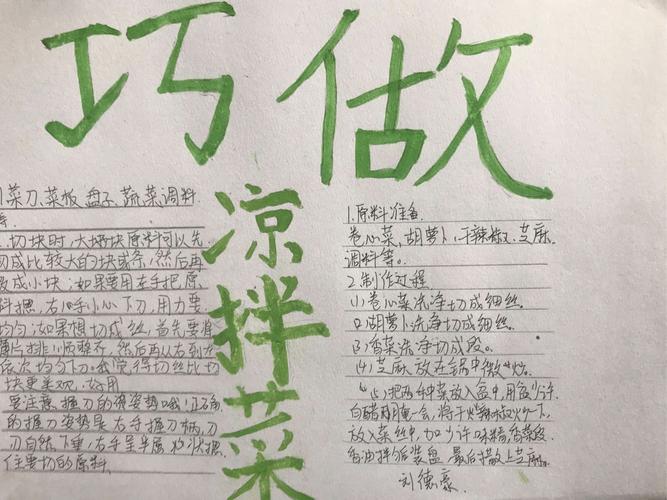 巧做
凉拌菜
菜刀、菜板、盘子、蔬菜调料
切块时,大块原料可以先
切成比较大的块或条,然后再
成小块;如果要用左手把原
料摁,右手小心下刀,用力要
均匀;如果想切成丝,首先要将
薄片排顺整齐,然后再从右到左
依次均匀下刀。我觉得切丝比切
块更美观,好用
要注意握刀的姿势哦!正确
的握刀姿势是右手握刀柄,刀
刀自然下垂,左手呈半屈爪状摁
住要切的原料
1.原料准备
卷心菜,胡萝卜,干辣椒、芝麻、
调料等。
2.制作过程
(1)卷心菜洗净切成细丝。
(2)胡萝卜洗净切成细丝。
(3)香菜洗净切成段。
(4)芝麻放在锅中微焙。
(5)把两种菜放入盆中,用盐少许
白醋两用腌一会,将干辣椒火一下,
放入菜丝中,加少许味精,香菜段
香油拌后装盘 最后撒上芝麻。
刘德豪